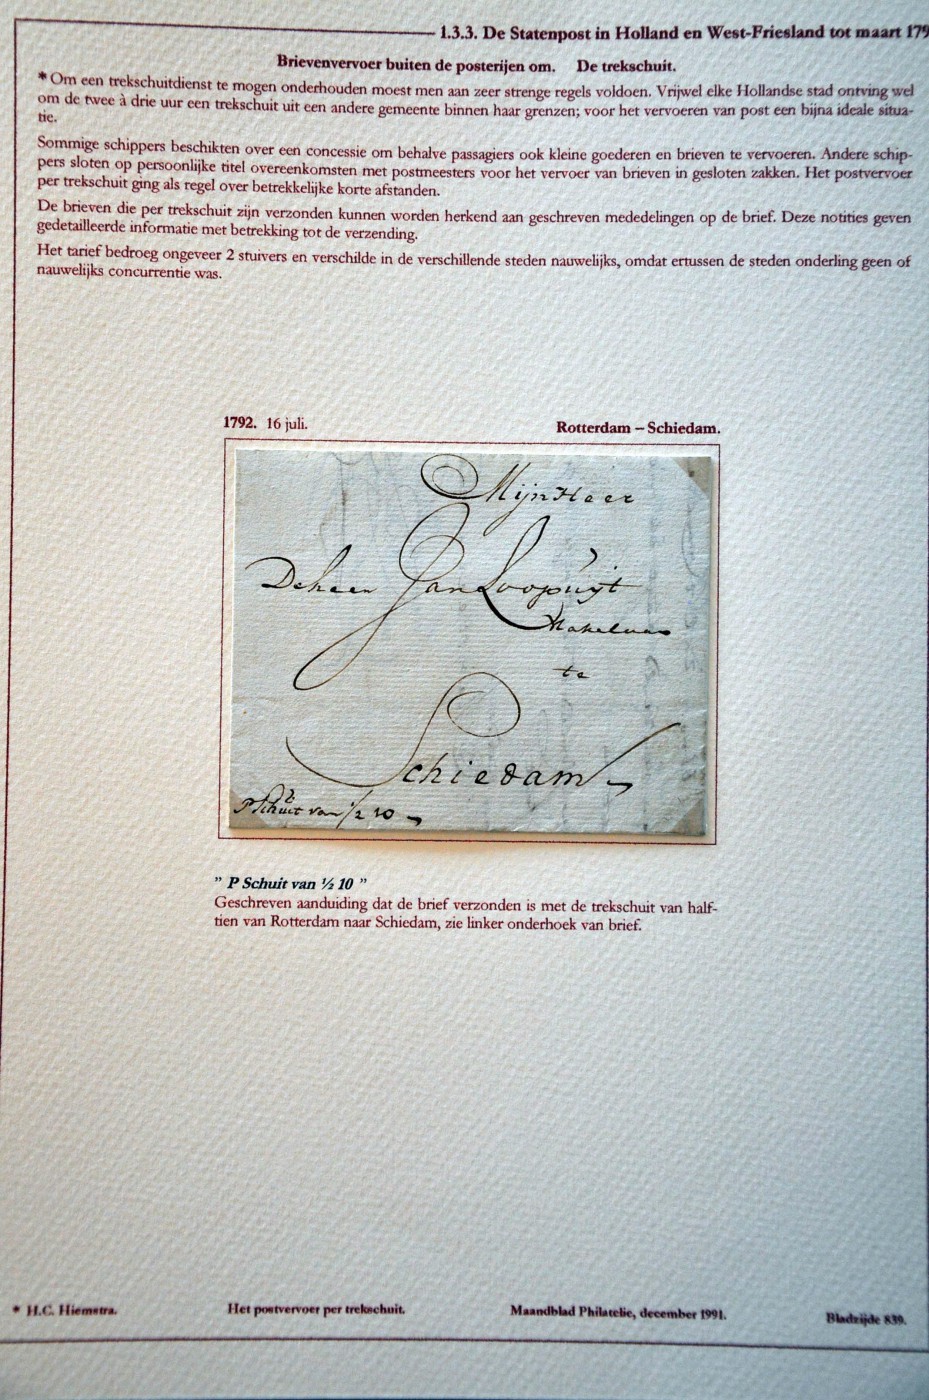 1.3.3. De Statenpost in Holland en West-Friesland tot maart 179
Brievenvervoer buiten de posterijen om. De trekschuit.
* Om een trekschuitdienst te mogen onderhouden moest men aan zeer strenge regels voldoen. Vrijwel elke Hollandse stad ontving wel
om de twee à drie uur een trekschuit uit een andere gemeente binnen haar grenzen; voor het vervoeren van post een bijna ideale situa-
tie.
Sommige schippers beschikten over een concessie om behalve passagiers ook kleine goederen en brieven te vervoeren. Andere schip-
pers sloten op persoonlijke titel overeenkomsten met postmeesters voor het vervoer van brieven in gesloten zakken. Het postvervoer
per trekschuit ging als regel over betrekkelijke korte afstanden.
De brieven die per trekschuit zijn verzonden kunnen worden herkend aan geschreven mededelingen op de brief. Deze notities geven
gedetailleerde informatie met betrekking tot de verzending.
Het tarief bedroeg ongeveer 2 stuivers en verschilde in de verschillende steden nauwelijks, omdat ertussen de steden onderling geen of
nauwelijks concurrentie was.
1792. 16 juli.
Rotterdam – Schiedam.
MijnHeer
De heer Jan Loopuijt
Makelaar
te
Schiedam
P Schuit van 1/2 10
" P Schuit van ½ 10 "
Geschreven aanduiding dat de brief verzonden is met de trekschuit van half-
tien van Rotterdam naar Schiedam, zie linker onderhoek van brief.
* H.C. Hiemstra. Het postvervoer per trekschuit. Maandblad Philatelie, december 1991. Bladzijde 839.